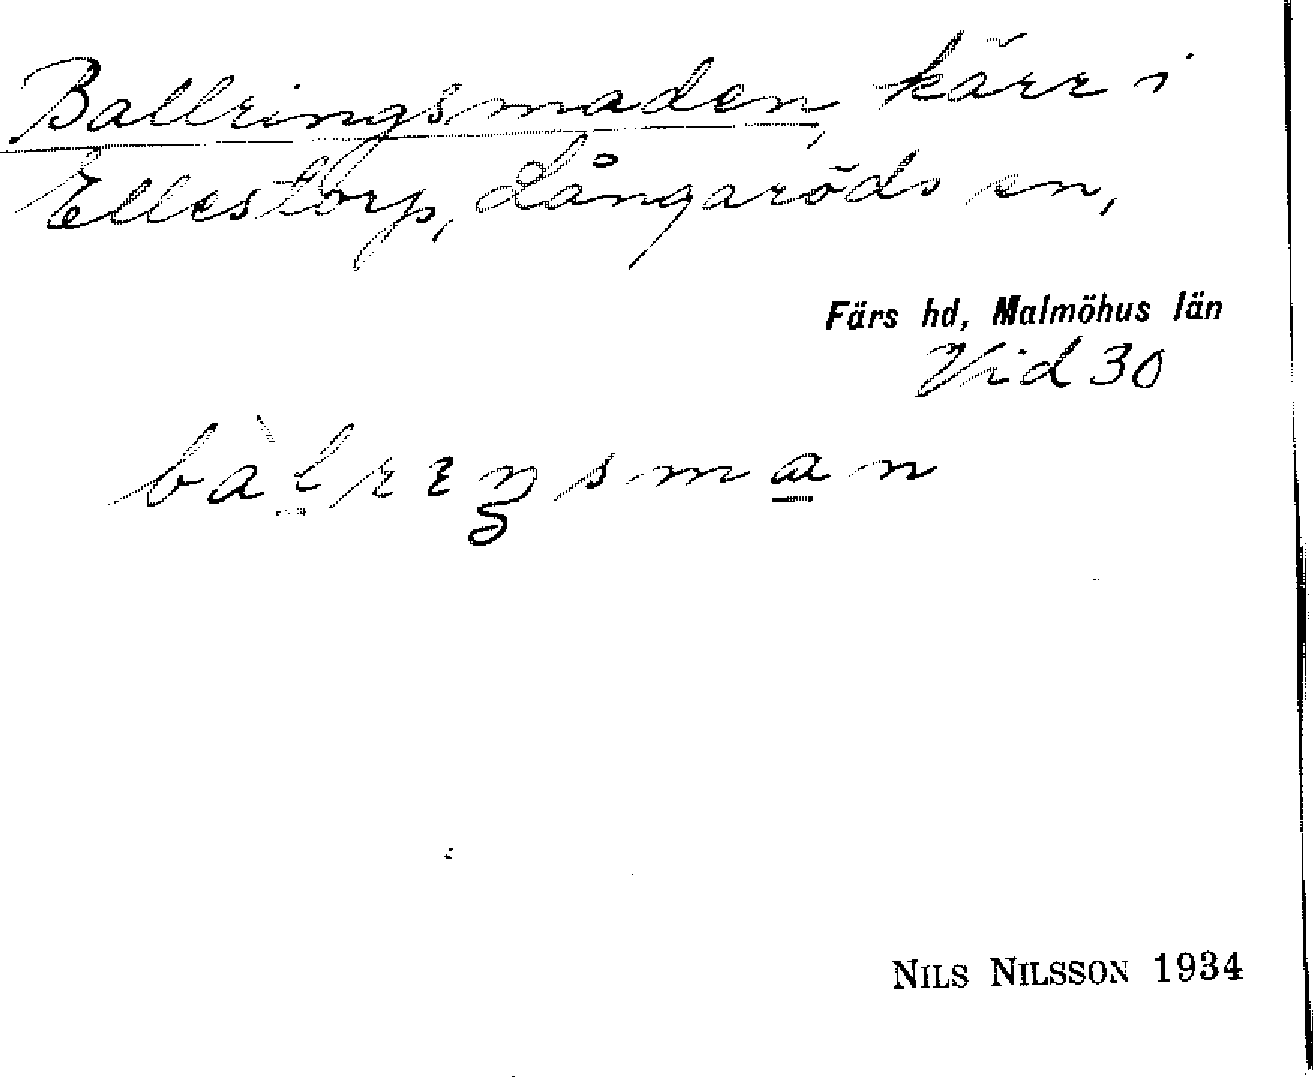 Ballringsmaden, kärr i
Ellestorp, Långaröds sn,
Färs hd, Malmöhus län
Vid 30
NILS NILSSON 1934